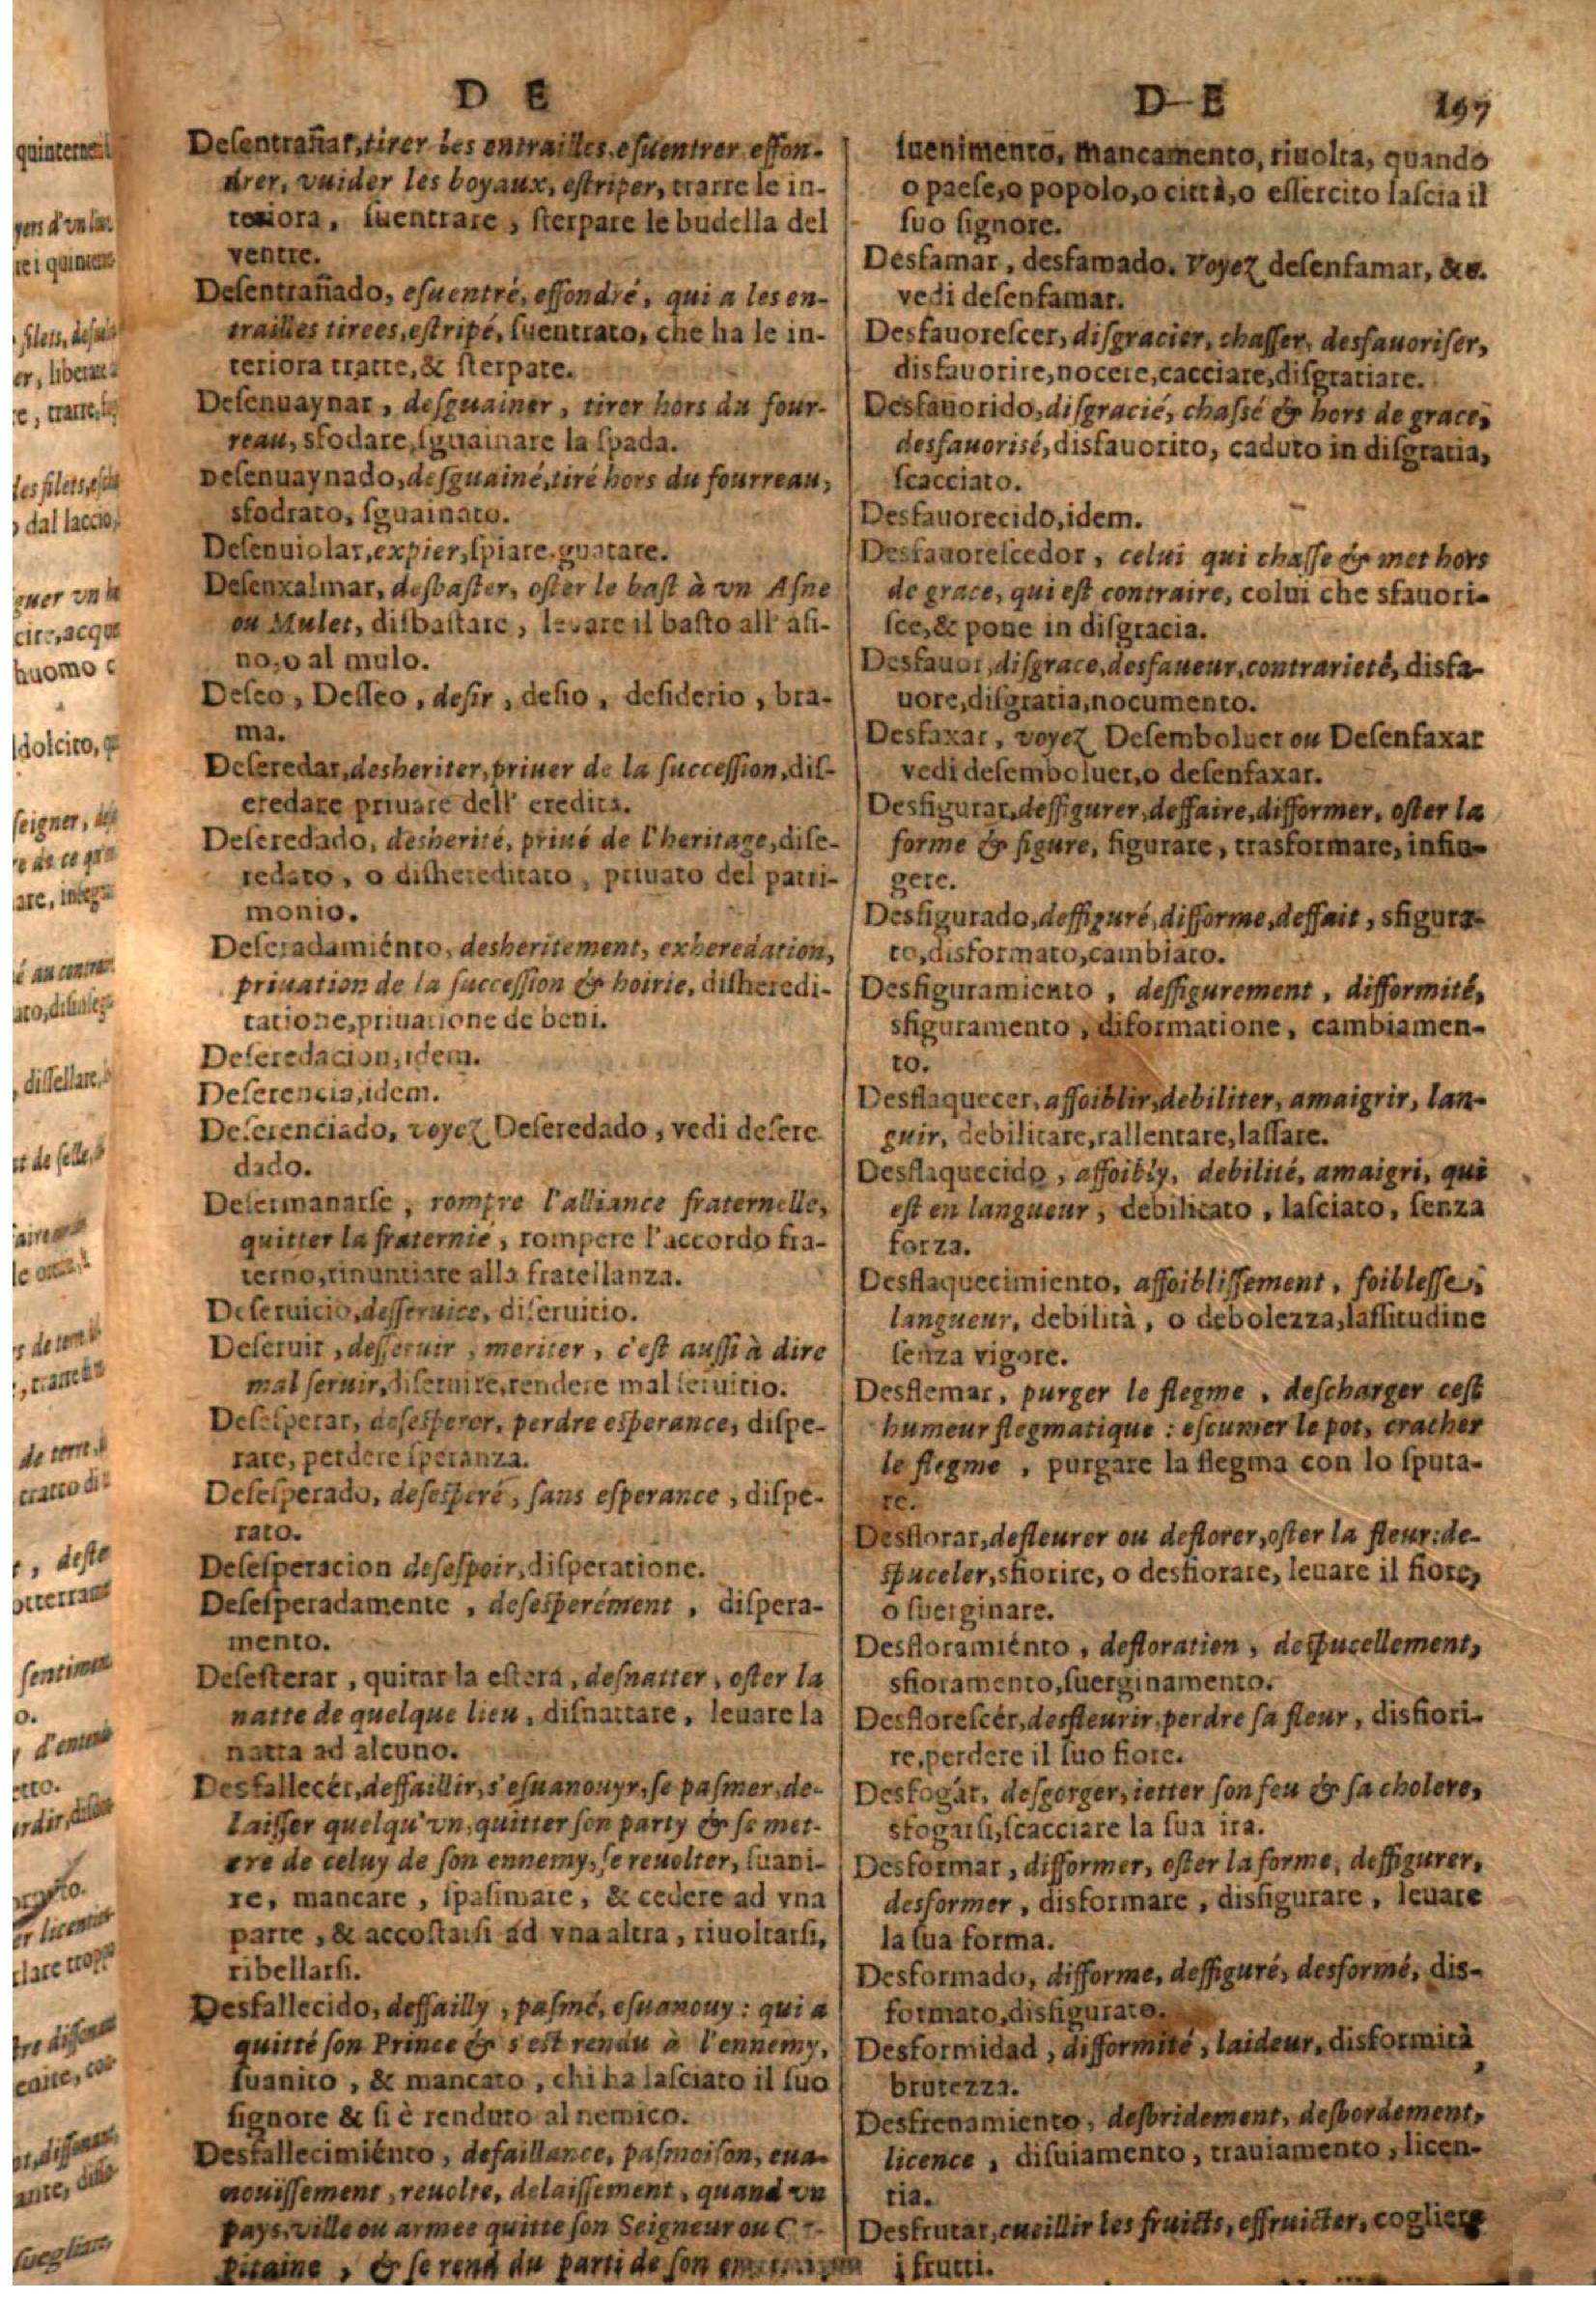 D E
Deſentrañar, tirer les entrailles, eſuentrer, effon-
drer, vuider les boyaux, eſtriper, trarre le in-
teriora, ſuentrare, ſterpare le budella del
ventre.
Deſentrañado, eſuentré, effondré, qui a les en-
trailles tirees, eſtripé, ſuentrato, che ha le in-
teriora tratte, & ſterpate.
Deſenuaynar, deſguainer, tirer hors du four-
reau, sfodare, ſguainare la ſpada.
Deſenuaynado, deſguainé, tiré hors du fourreau,
sfodrato, ſguainato.
Deſenuiolar, expier, ſpiare, guatare.
Deſenxalmar, desbaſter, oſter le baſt à vn Aſne
ou Mulet, diſbaſtare, levare il baſto all' aſi-
no, o al mulo.
Deſeo, Deſſeo, deſir, deſio, deſiderio, bra-
ma.
Deſeredar, desheriter, priuer de la ſucceſſion, diſ-
eredare priuare dell' eredità.
Deſeredado, desherité, priué de l'heritage, diſe-
redato, o diſhereditato, priuato del patri-
monio.
Deſeradamiénto, desheritement, exheredation,
priuation de la ſucceſſion & hoirie, diſheredi-
tatione, priuatione de beni.
Deſeredacion, idem.
Deſerencia, idem.
Deſerenciado, voyez Deſeredado, vedi deſere
dado.
Deſermanarſe, rompre l'alliance fraternelle,
quitter la fraternié, rompere l'accordo fra-
terno, rinuntiare alla fratellanza.
Deſeruicio, deſſeruice, diſeruitio.
Deſeruir, deſſeruir, meriter, c'eſt auſſi à dire
mal ſeruir, diſeruire, rendere mal ſeruitio.
Deſeſperar, deſeſperer, perdre eſperance, diſpe-
rare, perdere ſperanza.
Deſeſperado, deſeſperé, ſans eſperance, diſpe-
rato.
Deſeſperacion deſeſpoir, diſperatione.
Deſeſperadamente, deſeſperément, diſpera-
mento.
Deſeſterar, quitar la eſtera, deſnatter, oſter la
natte de quelque lieu, diſnattare, leuare la
natta ad alcuno.
Desfallecér, deffaillir, s'eſuanouyr, ſe paſmer, de-
laiſſer quelqu'vn, quitter ſon party & ſe met-
tre de celuy de ſon ennemy, ſe reuolter, ſuani-
re, mancare, ſpaſimare, & cedere ad vna
parte, & accoſtarſi ad vna altra, riuoltarſi,
ribellarſi.
Desfallecido, deffailly, paſmé, eſuanouy: qui a
quitté ſon Prince & s'eſt rendu à l'ennemy,
ſuanito, & mancato, chi ha laſciato il ſuo
ſignore & ſi è renduto al nemico.
Desfallecimiénto, defaillance, paſmoiſon, eua-
nouïſſement, reuolte, delaiſſement, quand vn
pays, ville ou armee quitte ſon Seigneur ou
pitaine, & ſe rend du parti de ſon
D E 197
ſuenimento, mancamento, riuolta, quando
o paeſe, o popolo, o città, o eſſercito laſcia il
ſuo ſignore.
Desfamar, desfamado. Voyez deſenfamar, &c.
vedi deſenfamar.
Desfauoreſcer, diſgracier, chaſſer, desfauoriſer,
disfauorire, nocere, cacciare, diſgratiare.
Desfauorido, diſgracié, chaſſé & hors de grace,
desfauorisé, disfauorito, caduto in diſgratia,
ſcacciato.
Desfauorecido, idem.
Desfauoreſcedor, celui qui chaſſe & met hors
de grace, qui eſt contraire, colui che sfauori-
ſce, & pone in diſgracia.
Desfauor, diſgrace, desfaueur, contrarieté, disfa-
uore, diſgratia, nocumento.
Desfaxar, voyez Deſemboluer ou Deſenfaxar
vedi deſemboluer, o deſenfaxar.
Desfigurar, deffigurer, deffaire, difformer, oſter la
forme & figure, figurare, trasformare, infin-
gere.
Desfigurado, deffiguré, difforme, deffait, sfigura-
to, disformato, cambiato.
Desfiguramiento, deffigurement, difformité,
sfiguramento, diformatione, cambiamen-
to.
Desflaquecer, affoiblir, debiliter, amaigrir, lan-
guir, debilitare, rallentare, laſſare.
Desflaquecido, affoibly, debilité, amaigri, qui
eſt en langueur, debilitato, laſciato, ſenza
forza.
Desflaquecimiento, affoibliſſement, foibleſſe,
langueur, debilità, o debolezza, laſſitudine
ſenza vigore.
Desflemar, purger le flegme, deſcharger ceſt
humeur flegmatique: eſcumer le pot, cracher
le flegme, purgare la flegma con lo ſputa-
re.
Desflorar, defleurer ou deflorer, oſter la fleur: de-
ſpuceler, sfiorire, o desfiorare, leuare il fiore,
o ſuerginare.
Desfloramiénto, defloration, deſpucellement,
sfioramento, ſuerginamento.
Desfloreſcér, desfleurir, perdre ſa fleur, disfiori-
re, perdere il ſuo fiore.
Desfogár, deſgorger, ietter ſon feu & ſa cholere,
sfogarſi, ſcacciare la ſua ira.
Desformar, difformer, oſter la forme, deffigurer,
desformer, disformare, disfigurare, leuare
la ſua forma.
Desformado, difforme, deffiguré, desformé, dis-
formato, disfigurato.
Desformidad, difformité, laideur, disformità,
brutezza.
Desfrenamiento, desbridement, desbordement,
licence, diſuiamento, trauiamento, licen-
tia.
Desfrutar, cueillir les fruicts, effruicter, cogliere
i frutti.